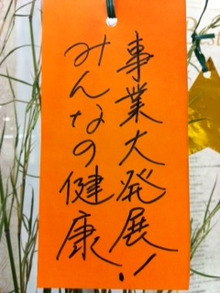 事業大発展!!
みんなの健康